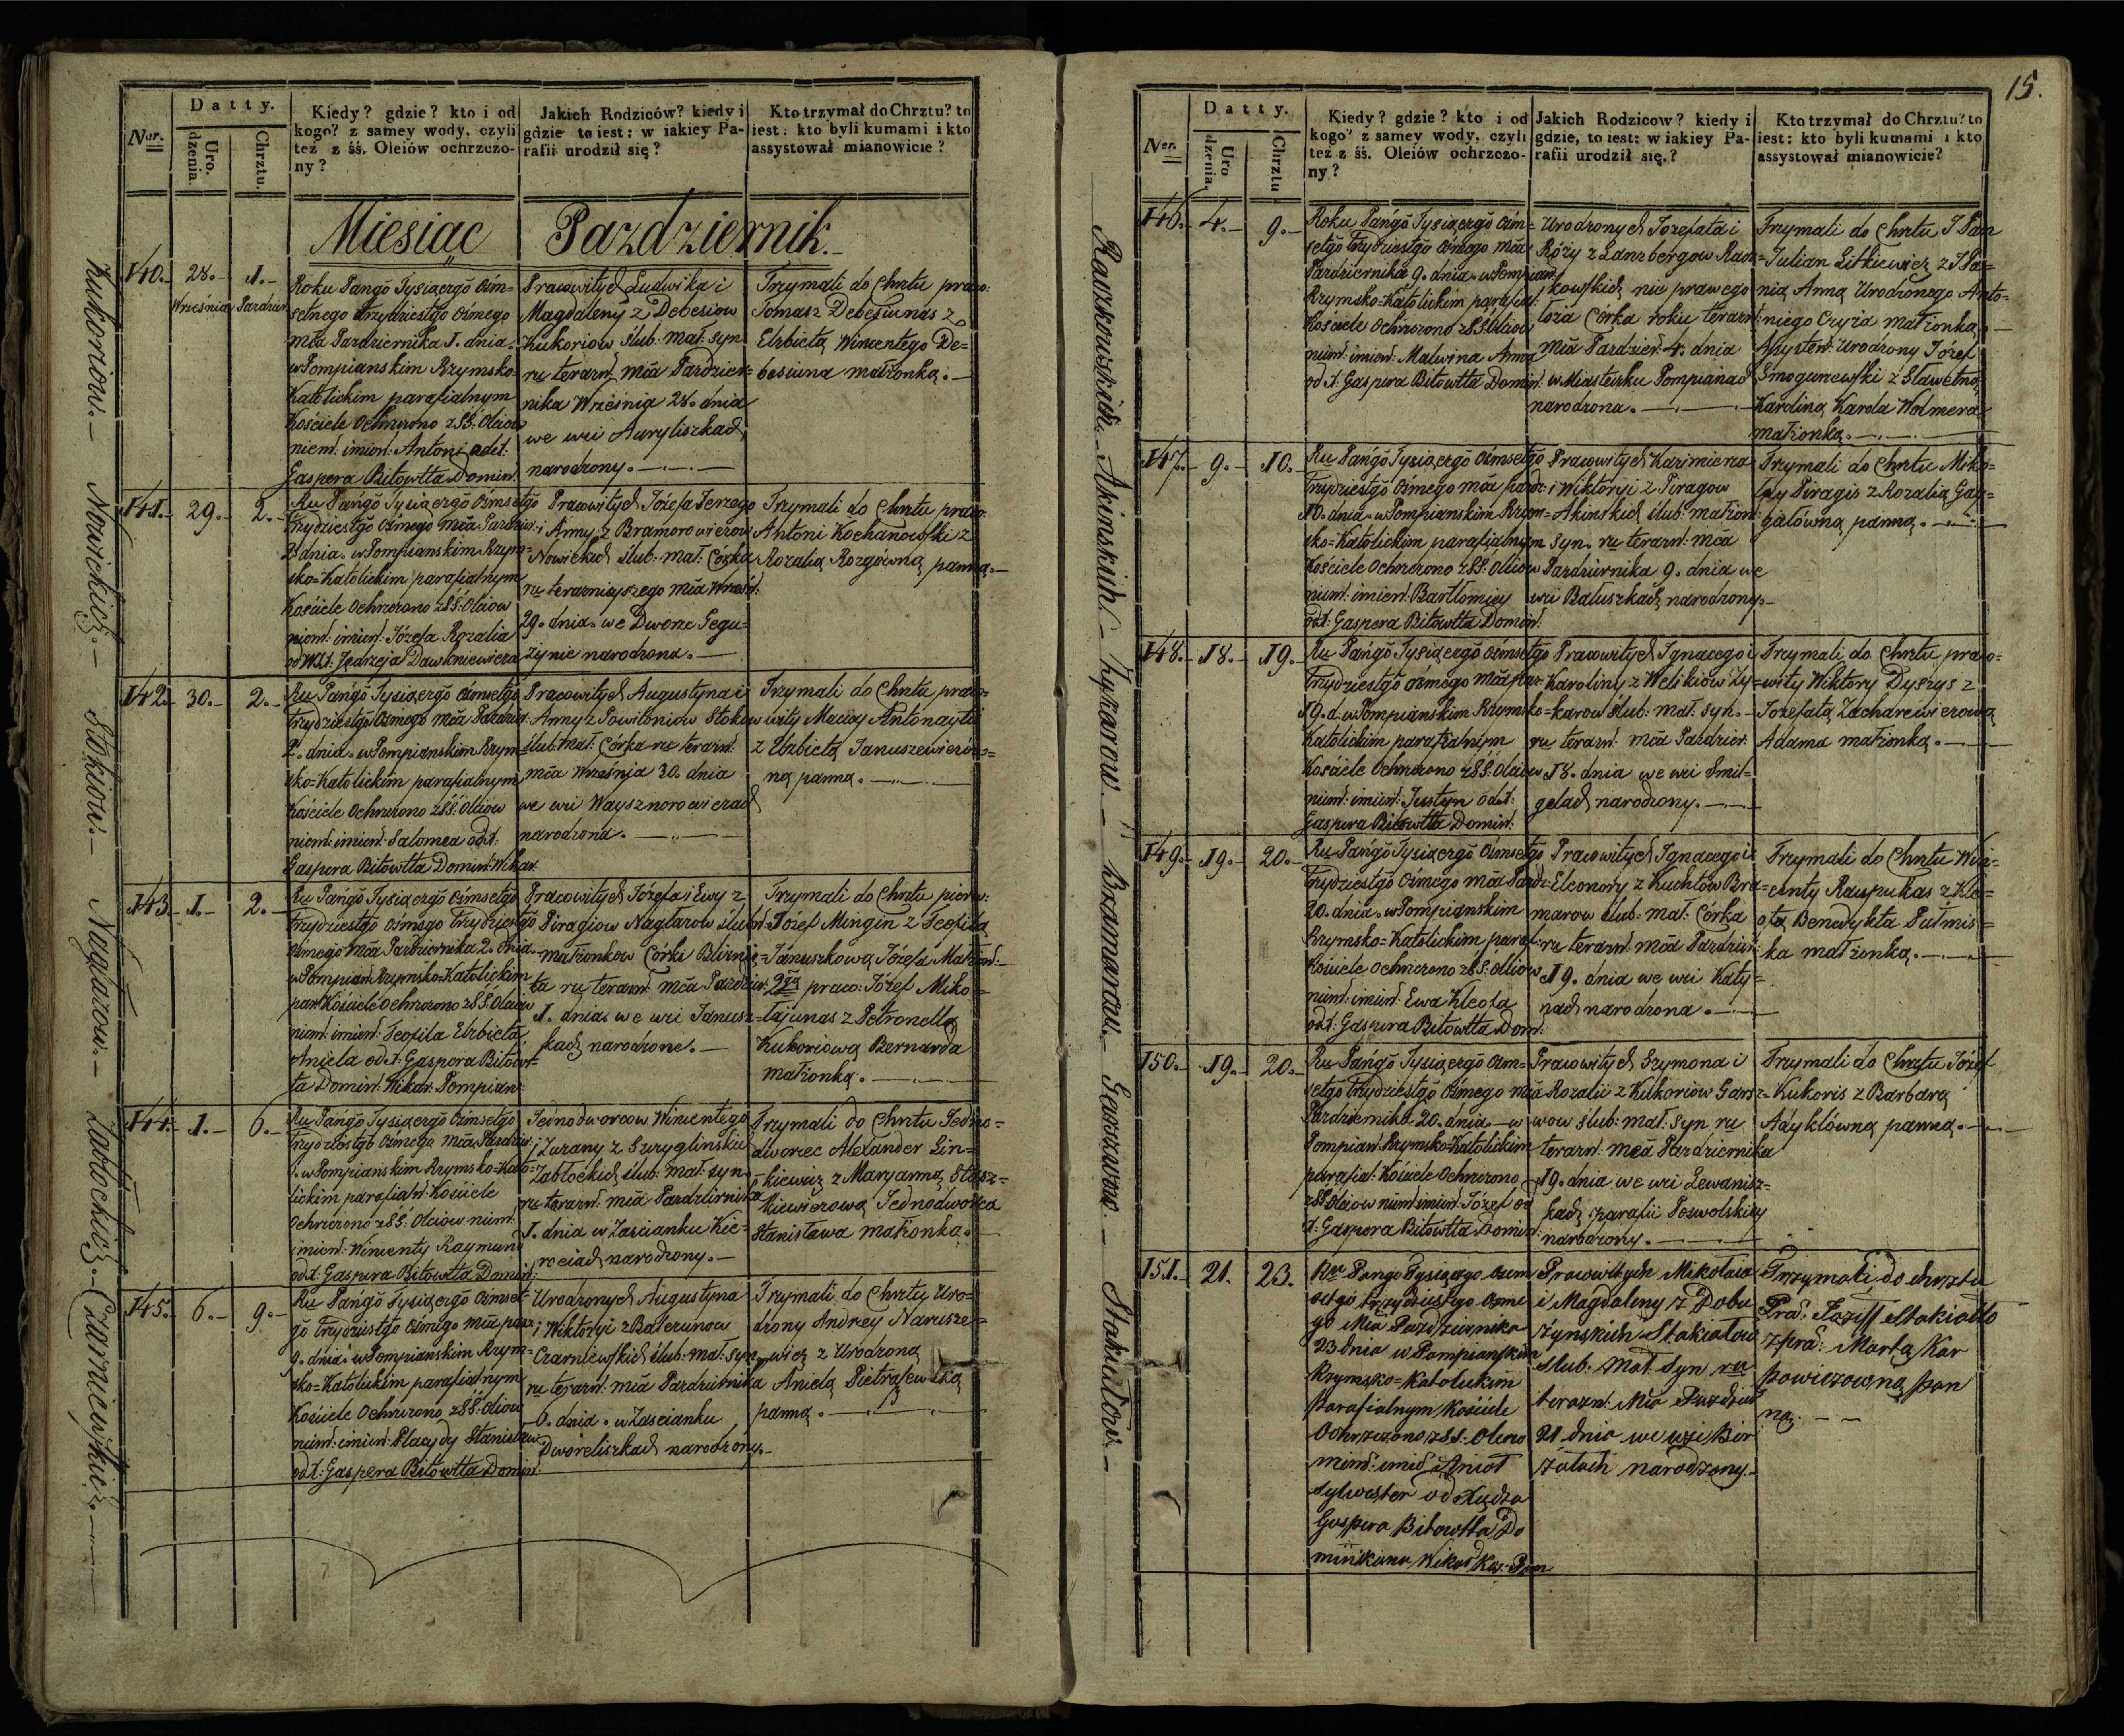 Datty.
Kiedy? gdzie? kto i od
kogo? z samey wody, czyli
też z śś. Oleiów ochrzczo-
ny?
Jakich Rodziców? kiedy i
gdzie to iest: w iakiey Pa-
rafii urodził się?
Kto trzymał do Chrztu? to
iest: kto byli kumami i kto
assystował mianowicie?
Ner.
Uro.
dzenia.
Chrztu.
Miesiąc Pazdziernik.
140. 28. Września 1. Pazdzier
Roku Pańgō Tysiącgō Ośm-
setnego Trzydziestgō Ośmego
mca Pazdziernika 1. dnia.
w Pompianskim Rzymsko-
Katolickim parafialnym
Kościele Ochrzczono z SS: Oleiow
niem: imien: Antoni od X:
Gaspera Bitowtta Domin:
Pracowitych Ludwika i
Magdaleny z Debesiow
Kukoriow ślub: mał: syn
ru terazń: mca Pazdzier-
nika Września 28. dnia
we wsi Auryliszkach
narodzony.
Trzymali do Chrztu praco:
Tomasz Debesiunas z
Elzbietą Wincentego De-
besiuna małżonką.
141. 29. 2.
Ru Pańgō Tysiącgō Ośmsetgō
Trzydziestgō Ośmego mca Pazdzier:
2. dnia. w Pompianskim Rzym-
sko-Katolickim parafialnym
Kościele Ochrzczono z SS: Oleiow
niem: imien: Józefa Rozalia
od WX: Jędrzeja Dawkniewicza
Pracowitych Józefa Jerzego
i Anny z Bramorowiczow
Nowickich ślub: mał: Córka
ru teraznieyszego mca Wrześ:
29. dnia. we Dworze Gegu-
żynie narodzona.
Trzymali do Chrztu praco:
Antoni Kochanowski z
Rozalią Rozgówną panną.
142. 30. 2.
Ru Pańgō Tysiącgō Ośmsetgō
Trzydziestgō Ośmego mca Pazdzier:
2. dnia. w Pompianskim Rzym-
sko-Katolickim parafialnym
Kościele Ochrzczono z SS: Oleiow
niem: imien: Salomea od X:
Gaspera Bitowtta Domin: Wikar.
Pracowitych Augustyna i
Anny z Powiloniow Stokow
ślub: mał: Córka ru terazń:
mca Września 30. dnia
we wsi Waysznorowiczach
narodzona.
Trzymali do Chrztu praco-
wity Maciey Antonayti
z Elzbietą Januszewiczów-
ną panną.
143. 1. 2.
Ru Pańgō Tysiącgō Ośmsetgō
Trzydziestgō Ośmego Trzydziestgō
Ośmego mca Pazdziernika 2. dnia
w Pompiań: Rzymsko-Katolickim
paraf: Kościele Ochrzczono z SS: Oleiow
niem: imien: Teofila Elzbieta,
Aniela od X: Gaspera Bitowt-
ta Domin: Wikar: Pompian:
Pracowitych Józefa i Ewy z
Piragiow Naglarow ślubń:
małżonkow Córki Bliznię-
ta ru terazń: mca Pazdzier:
1. dnia. we wsi Janusz-
kach narodzone.
Trzymali do Chrztu pierw:
Józef Mingin z Teofilą
Januszkową Józefa Małżon:
2gą praco: Józef Miko-
łajunas z Petronellą
Kukoriową Bernarda
małżonką.
144. 1. 6.
Ru Pańgō Tysiącgō Ośmsetgō
Trzydziestgō Ośmego mca Pazdzier:
w Pompianskim Rzymsko-Kato-
lickim parafialń: Kościele
Ochrzczono z SS: Oleiow niem:
imien: Wincenty Raymund
od X: Gaspera Bitowtta Domin:
Jednodworcow Wincentego
i Zuzany z Szryglinskich
Zabłockich ślub: mał: syn
ru terazń: mca Pazdziernika
1. dnia w Zascianku Kie-
rociach narodzony.
Trzymali do Chrztu Jedno-
dworzec Alexander Lin-
kiewicz z Maryanną Stasz-
kiewiczową Jednodworca
Stanisława małżonką.
145. 6. 9.
Ru Pańgō Tysiącgō Ośmset-
gō Trzydziestgō Ośmego mca pazz:
9. dnia w Pompianskim Rzym-
sko-Katolickim parafialnym
Kościele Ochrzczono z SS: Oleiow
niem: imien: Placydy Stanisław
od X: Gaspera Bitowtta Domin:
Urodzonych Augustyna
i Wiktoryi z Baterunow
Czarniewskich ślub: mał: syn
ru terazń: mca Pazdziernika
6. dnia. w Zascianku
Dworeliszkach narodzony.
Trzymali do Chrztu Uro-
dzony Andrzey Narusze-
wicz z Urodzoną
Anielą Pietraszewską
panną.
Kukoriow. Nowickich. Stokow. Naglarow. Zabłockich. Czarniewskich.
15.
Ner.
Datty.
Uro
dzenia.
Chrztu
Kiedy? gdzie? kto i od
kogo? z samey wody, czyli
też z śś. Oleiów ochrzczo-
ny?
Jakich Rodzicow? kiedy i
gdzie, to iest: w iakiey Pa-
rafii urodził się.?
Kto trzymał do Chrztu? to
iest: kto byli kumami i kto
assystował mianowicie?
146. 4. 9.
Roku Pańgō Tysiącgō Ośm-
setgō Trzydziestgō Ośmego mca
Pazdziernika 9. dnia. w Pompian:
Rzymsko-Katolickim parafial:
Kościele Ochrzczono z SS: Oleiow
niem: imien: Malwina Anna
od X: Gaspera Bitowtta Domin:
Urodzonych Jozefata i
Róży z Lanzbergow Racz-
kowskich nie prawego
łoża Córka roku terazń:
mca Pazdzier: 4. dnia
w Miasteczku Pompianach
narodzona.
Trzymali do Chrztu J Pan
Julian Litkiewicz z J Pa-
nią Anną Urodzonego Anto-
niego Czyża małżonką.
Assysten: Urodzony Józef
Smogurzewski z Sławetną
Karoliną Karola Wolmera
małżonką.
147. 9. 10.
Ru Pańgō Tysiącgō Ośmsetgō
Trzydziestgō Ośmego mca pazdz:
10. dnia. w Pompianskim Rzym-
sko-Katolickim parafialnym
Kościele Ochrzczono z SS: Oleiow
niem: imien: Bartłomiey
od X: Gaspera Bitowtta Domin:
Pracowitych Kazimierza
i Wiktoryi z Piragow
Akinskich ślub: małżon:
syn. ru terazń: mca
Pazdziernika 9. dnia we
wsi Bałuszkach narodzony.
Trzymali do Chrztu Miko-
łay Piragis z Rozalią Gay-
gałówną panną.
148. 18. 19.
Ru Pańgō Tysiącgō Ośmsetgō
Trzydziestgō Ośmego mca paz-
19. d: w Pompianskim Rzymsko-
Katolickim parafialnym
Kościele Ochrzczono z SS: Oleiow
niem: imien: Justyn od X:
Gaspera Bitowtta Domin:
Pracowitych Ignacego i
Karoliny z Welikiow Zy-
karow ślub: mał: syn.
ru terazń: mca Pazdzier:
18. dnia we wsi Smil-
gelach narodzony.
Trzymali do Chrztu praco-
wity Wiktory Dyszys z
Jozefatą Zacharewiczową
Adama małżonką.
149. 19. 20.
Ru Pańgō Tysiącgō Ośmsetgō
Trzydziestgō Ośmego mca Pazdz:
20. dnia. w Pompianskim
Rzymsko-Katolickim paraf:
Kościele Ochrzczono z SS: Oleiow
niem: imien: Ewa Kleofa
od X: Gaspera Bitowtta Dom:
Pracowitych Ignacego i
Eleonory z Kuchtow Bra-
marow ślub: mał: Córka
ru terazń: mca Pazdzier:
19. dnia we wsi Katy-
nach narodzona.
Trzymali do Chrztu Win-
centy Raupukas z Kle-
ofą Benedykta Putmis-
ka małżonką.
150. 19. 20.
Ru Pańgō Tysiącgō Ośm-
setgō Trzydziestgō Ośmego mca
Pazdziernika 20. dnia w
Pompiań: Rzymsko-Katolickim
parafial: Kościele Ochrzczono
z SS: Oleiow niem: imien: Józef od
X: Gaspera Bitowtta Domin:
Pracowitych Szymona i
Rozalii z Kukoriow Garsz-
wow ślub: mał: syn ru
terazń: mca Pazdziernika
19. dnia we wsi Lewanisz-
kach parafii Poswolskiey
narodzony.
Trzymali do Chrztu Józef
Kukoris z Barbarą
Adyklówną panną.
151. 21. 23.
Ru Pango Tysiącgo Osm
setgo trzydziestgo Osme
go Mca Pazdziernika
23 dnia w Pompianskim
Rzymsko-Katolickim
Parafialnym Kościele
Ochrzczono z SS: Oleiow
niem: imie: Anioł
Sylwester od Xiędza
Gaspera Bitowtta Do
minikana Wikar Kos: Pom
Pracowitych Mikołaia
i Magdaleny z Dobu
żynskich Stakiałow
slub: Mał: Syn ru
terazn: Mca Pazdzier
21 dnia we wsi Bir
żałach narodzony.
Trzymali do chrztu
Pra: Joziff Stakiałło
z pra: Martą Kar
powiczowną pan
ną.
Raczkowskich. Akinskich. Zykarow. Bramarow. Garszwow. Stakiałow.